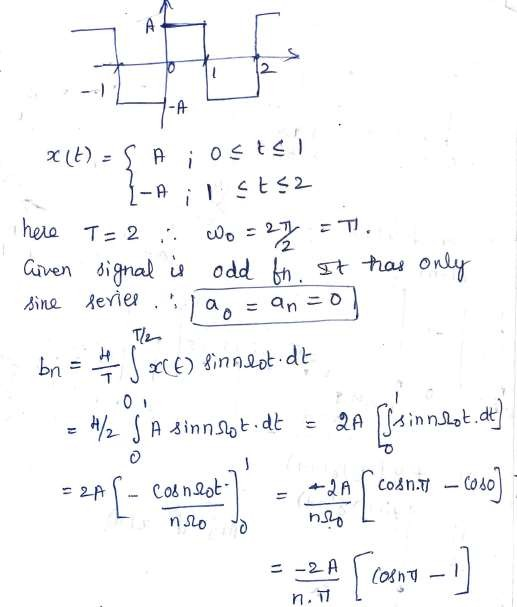 A
0 1 2
-1
-A
x(t) = { A ; 0 ≤ t ≤ 1
{ -A ; 1 ≤ t ≤ 2
here T = 2 ∴ ω₀ = 2π/2 = π.
Given signal is odd fn. It has only
sine series. ∴ a₀ = aₙ = 0
bn = 4/T ∫₀^{T/2} x(t) sinnΩ₀t·dt
= 4/2 ∫₀¹ A sinnΩ₀t·dt = 2A [∫₀¹ sinnΩ₀t.dt]
= 2A [ - cosnΩ₀t / nΩ₀ ]₀¹ = -2A / nΩ₀ [ cosn.π - cos0 ]
= -2A / n.π [ cosnπ - 1 ]